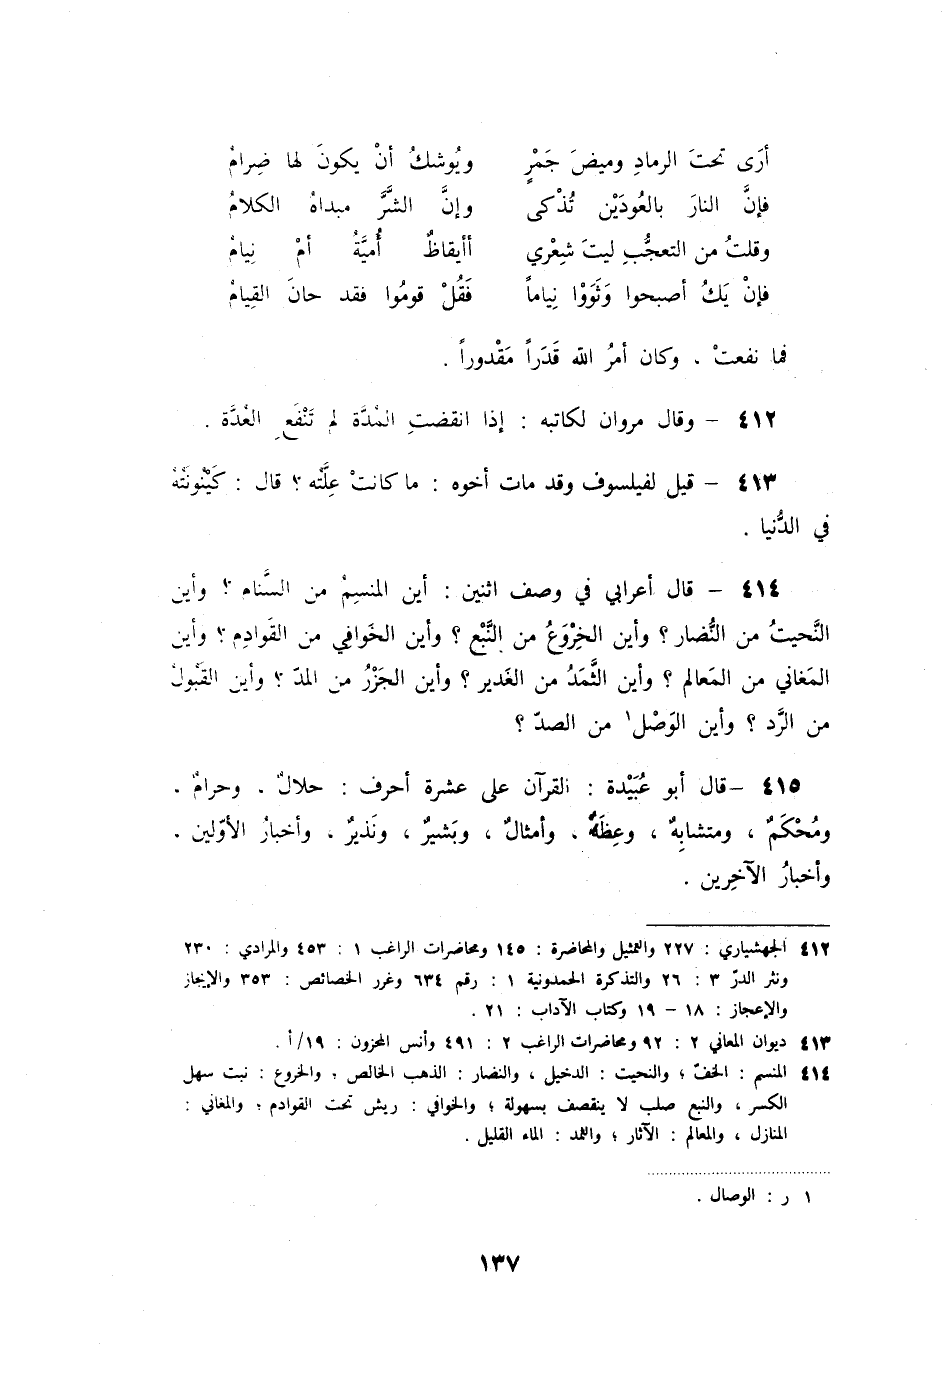 أرَى تحتَ الرمادِ وميضَ جَمْرٍ ويُوشكُ أنْ يكونَ لها ضِرامُ
فإنَّ النارَ بالعُودَيْن تُذْكى وإنَّ الشرَّ مبداهُ الكلامُ
وقلتُ من التعجُّبِ ليتَ شِعْري أأيقاظٌ أُميَّةُ أمْ نِيامُ
فإنْ يَكُ أصبحوا وَثَوَوْا نِياماً فَقُلْ قومُوا فقد حانَ القِيامُ
فما نفعتْ . وكان أمرُ الله قَدَراً مَقْدوراً .
٤١٢ – وقال مروان لكاتبه : إذا انقضتِ المُدَّة لم تَنْفَعِ العُدَّة .
٤١٣ – قيل لفيلسوف وقد مات أخوه : ما كانتْ عِلَّته ؟ قال : كَيْنُونَتُهُ
في الدُّنيا .
٤١٤ – قال أعرابي في وصف اثنين : أين المنسِمُ من السَّنام ؟ وأين
النَّحيتُ من النُّضار ؟ وأين الخِرْوَعُ من النَّبْع ؟ وأين الخَوافي من القَوادِم ؟ وأين
المَغاني من المَعالم ؟ وأين الثَّمَدُ من الغَدير ؟ وأين الجَزْرُ من المدّ ؟ وأين القَبُولُ
من الرَّد ؟ وأين الوَصْل١ من الصدّ ؟
٤١٥ –قال أبو عُبَيْدة : القرآن على عشرة أحرف : حلالٌ . وحرامٌ .
ومُحْكَمٌ ، ومتشابِهٌ ، وعِظَةٌ . وأمثالٌ ، وبَشيرٌ ، ونَذيرٌ . وأخبارُ الأوّلين .
وأخبارُ الآخِرين .
٤١٢ الجهشياري : ٢٢٧ والتمثيل والمحاضرة : ١٤٥ ومحاضرات الراغب ١ : ٤٥٣ والمرادي : ٢٣٠
ونثر الدرّ ٣ : ٢٦ والتذكرة الحمدونية ١ : رقم ٦٣٤ وغرر الخصائص : ٣٥٣ والإيجاز
والإعجاز : ١٨ – ١٩ وكتاب الآداب : ٢١ .
٤١٣ ديوان المعاني ٢ : ٩٢ ومحاضرات الراغب ٢ : ٤٩١ وأنس المحزون : ١٩/أ .
٤١٤ المنسم : الخفّ ؛ والنحيت : الدخيل ، والنضار : الذهب الخالص ؛ والخروع : نبت سهل
الكسر ، والنبع صلب لا ينقصف بسهولة ؛ والخوافي : ريش تحت القوادم ؛ والمغاني :
المنازل ، والمعالم : الآثار ؛ والثمد : الماء القليل .
١ ر : الوصال .
١٣٧